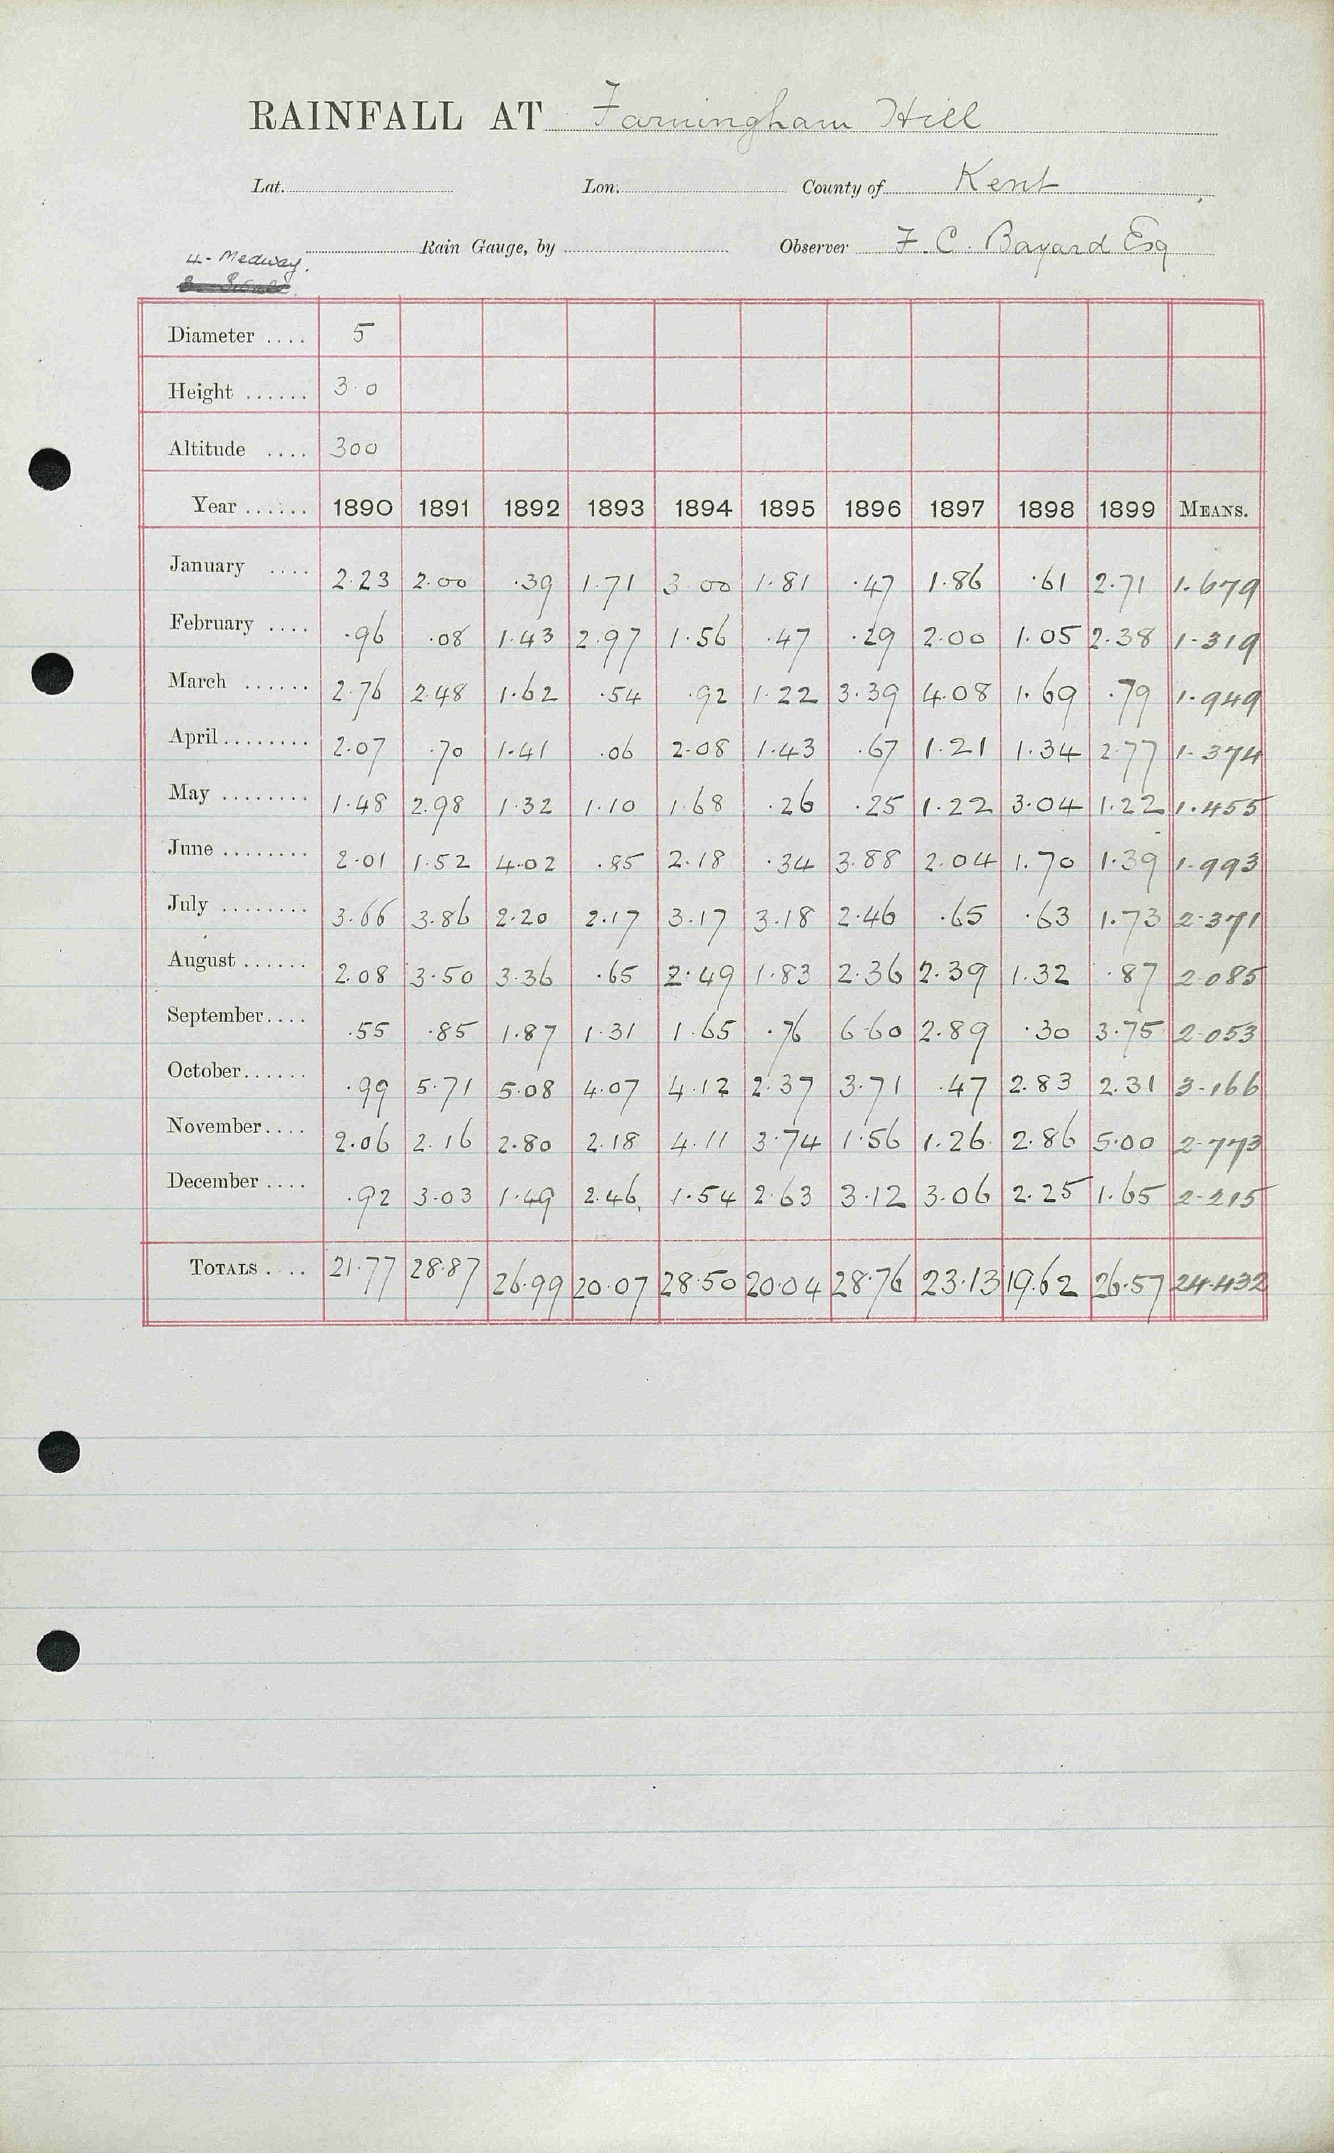 RAINFALL AT Farningham Hill
Lat. Lon. County of Kent
Rain Gauge, by Observer F. C. Bayard Esq
4 - Medway.
Diameter .... 5
Height ...... 3.0
Altitude .... 300
Year ...... 1890 1891 1892 1893 1894 1895 1896 1897 1898 1899 MEANS.
January .... 2.23 2.00 .39 1.71 3.00 1.81 .47 1.86 .61 2.71 1.679
February .... .96 .08 1.43 2.97 1.56 .47 .29 2.00 1.05 2.38 1.319
March ...... 2.76 2.48 1.62 .54 .92 1.22 3.39 4.08 1.69 .79 1.949
April ........ 2.07 .70 1.41 .06 2.08 1.43 .67 1.21 1.34 2.77 1.374
May ........ 1.48 2.98 1.32 1.10 1.68 .26 .25 1.22 3.04 1.22 1.455
June ........ 2.01 1.52 4.02 .85 2.18 .34 3.88 2.04 1.70 1.39 1.993
July ........ 3.66 3.86 2.20 2.17 3.17 3.18 2.46 .65 .63 1.73 2.371
August ...... 2.08 3.50 3.36 .65 2.49 1.83 2.36 2.39 1.32 .87 2.085
September .... .55 .85 1.87 1.31 1.65 .76 6.60 2.89 .30 3.75 2.053
October ...... .99 5.71 5.08 4.07 4.12 2.37 3.71 .47 2.83 2.31 3.166
November .... 2.06 2.16 2.80 2.18 4.11 3.74 1.56 1.26 2.86 5.00 2.773
December .... .92 3.03 1.49 2.46 1.54 2.63 3.12 3.06 2.25 1.65 2.215
TOTALS .... 21.77 28.87 26.99 20.07 28.50 20.04 28.76 23.13 19.62 26.57 24.432